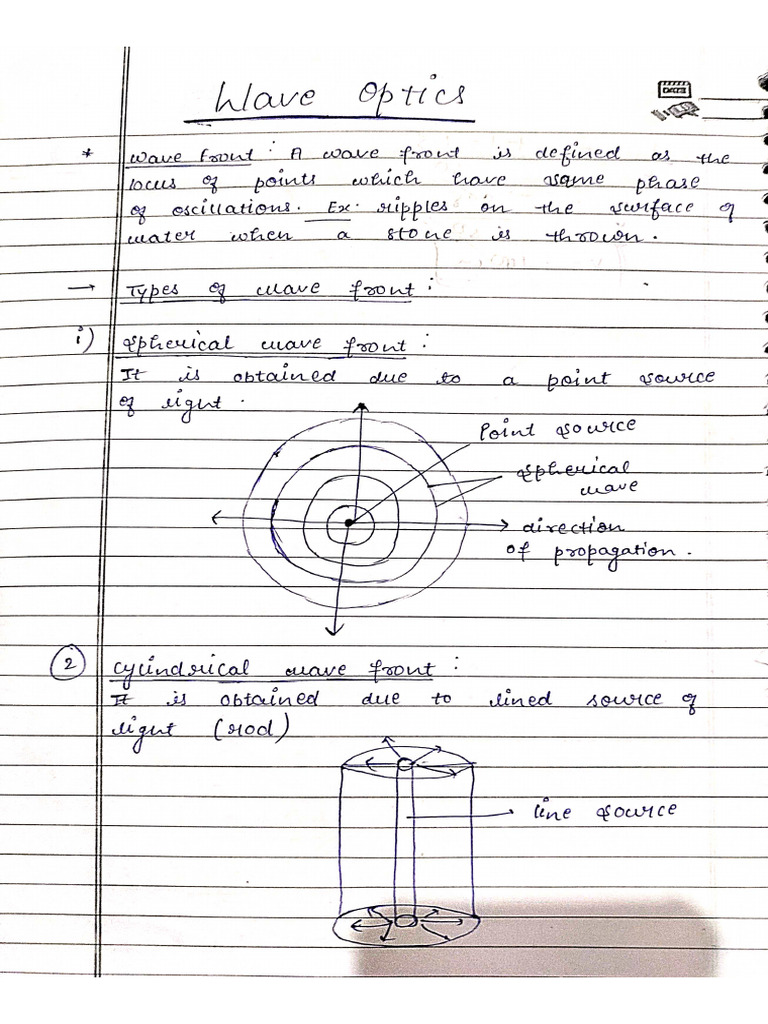 Wave Optics
DATE
* Wave front : A wave front is defined as the
locus of points which have same phase
of oscillations. Ex: ripples on the surface of
water when a stone is thrown.
→ Types of wave front :
i) Spherical wave front :
It is obtained due to a point source
of light.
Point source
Spherical
wave
direction
of propagation.
2 Cylindrical wave front :
It is obtained due to lined source of
light (rod)
line source